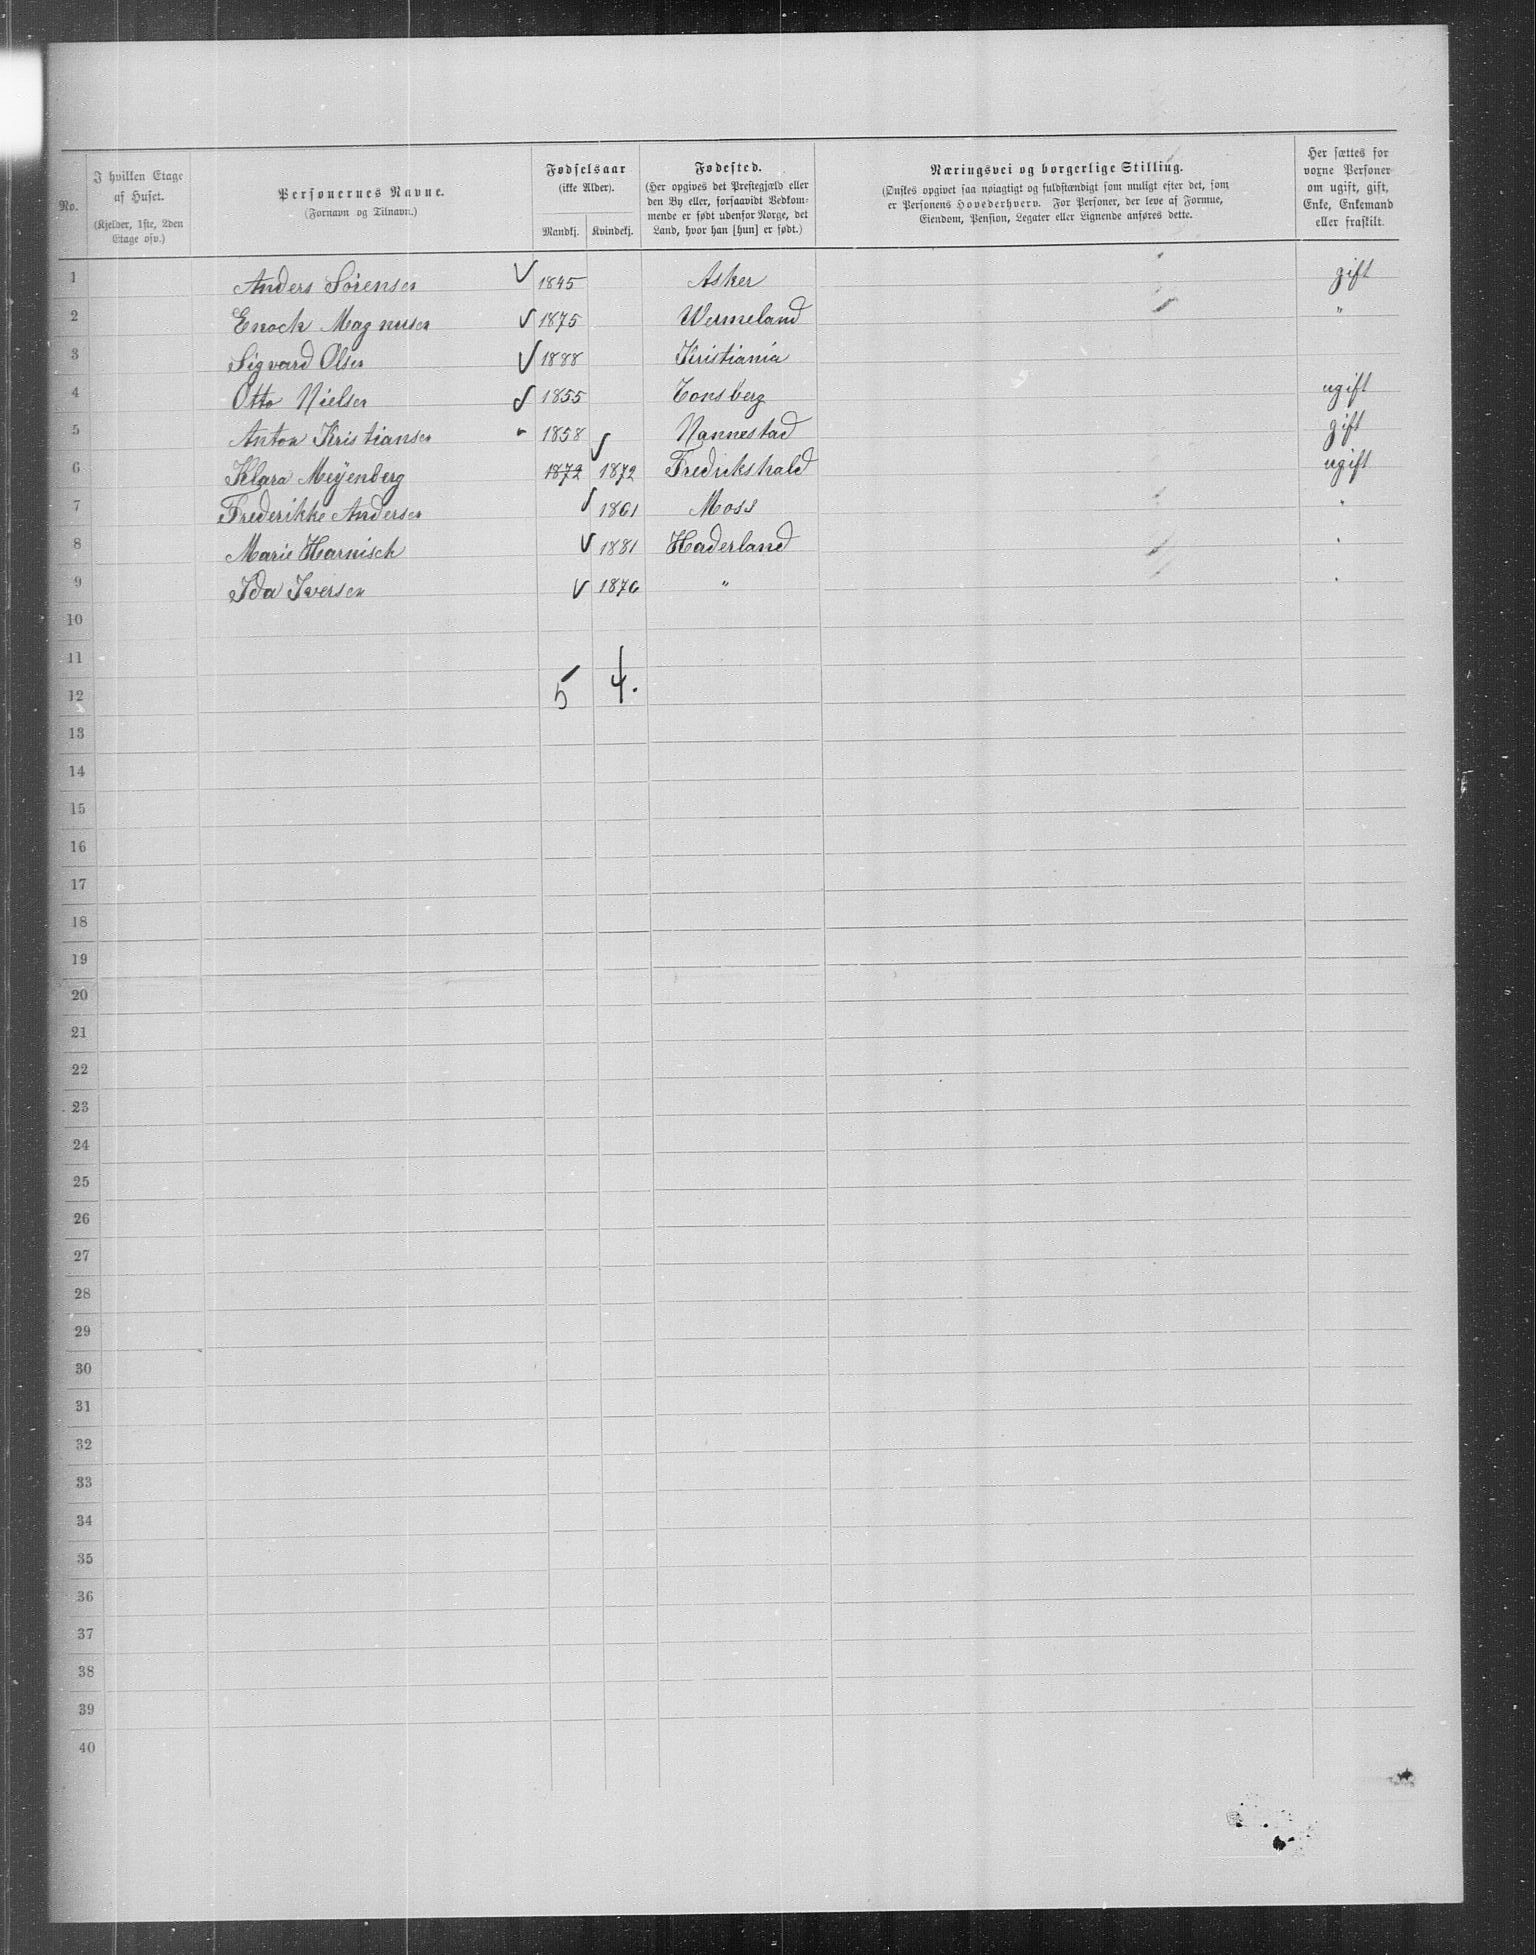 No.
I hvilken Etage af Huset.
(Kjelder, 1ste, 2den Etage osv.)
Personernes Navne.
(Fornavn og Tilnavn.)
Fødselsaar
(ikke Alder).
Mandkj. Kvindekj.
Fødested.
(Her opgives det Prestegjæld eller
den By eller, forsaavidt Vedkom-
mende er født udenfor Norge, det
Land, hvor han [hun] er født.)
Næringsvei og borgerlige Stilling.
(Ønskes opgivet saa nøiagtigt og fuldstændigt som muligt efter det, som
er Personens Hovederhverv. For Personer, der leve af Formue,
Eiendom, Pension, Legater eller Lignende anføres dette.
Her sættes for
voxne Personer
om ugift, gift,
Enke, Enkemand
eller fraskilt.
1 Anders Sørensen 1845 Asker gift
2 Enock Magnusen 1875 Wermeland "
3 Sigvard Olsen 1888 Kristiania
4 Otto Nielsen 1855 Tonsberg ugift
5 Anton Kristiansen 1858 Nannestad gift
6 Klara Meÿenberg 1872 1872 Fredrikshald ugift
7 Frederikke Andersen 1861 Moss "
8 Marie Harnisch 1881 Haderland "
9 Ida Iversen 1876 " "
10
11
12 5 4.
13
14
15
16
17
18
19
20
21
22
23
24
25
26
27
28
29
30
31
32
33
34
35
36
37
38
39
40